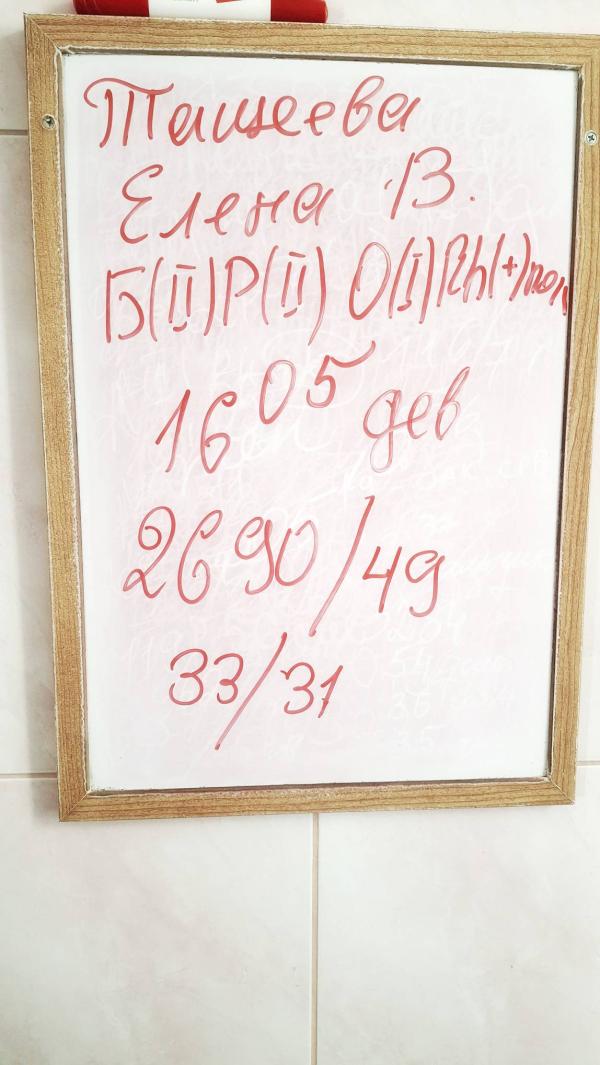 Тащеева
Елена В.
Б(II)Р(II) O(I)Rh(+)пол
16 05 дев
2690/49
33/31